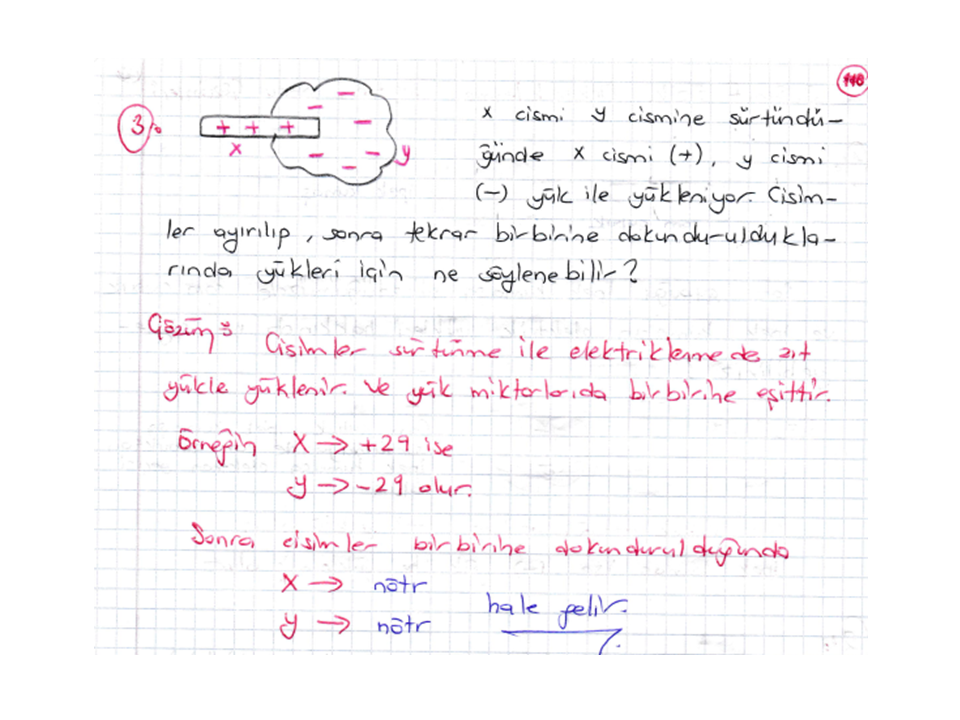 118
3.
+ + +
x
y
x cismi y cismine sürtündü-
ğünde x cismi (+), y cismi
(-) yük ile yükleniyor. Cisim-
ler ayırılıp, sonra tekrar birbirine dokunduruldukla-
rında yükleri için ne söylenebilir?
Çözüm: Cisimler sürtünme ile elektriklenmede zıt
yükle yüklenir. Ve yük miktarlarıda birbirine eşittir.
Örneğin X → +2q ise
y → -2q olur.
Sonra cisimler birbirine dokundurulduğunda
X → nötr
hale gelir.
y → nötr